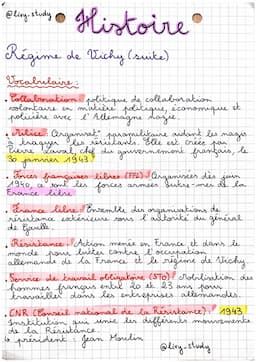 @livy_study
Histoire
Régime de Vichy (suite)
Vocabulaire :
• Collaboration : politique de collaboration
volontaire en matière politique, économique et
policière avec l'Allemagne nazie.
• Milice : Organisat° paramilitaire aidant les nazis
à traquer les résistants. Elle est créée par
Pierre Laval, chef du gouvernement français, le
30 janvier 1943.
• Forces françaises libres (FFL) : Organisées dès juin
1940, ce sont les forces armées outre-mer de la
France libre.
• France libre : Ensemble des organisations de
résistance extérieure sous l'autorité du général
de Gaulle.
• Résistance : Action menée en France et dans le
monde pour lutter contre l'occupation
allemande de la France et le régime de Vichy.
• Service de travail obligatoire (STO) : Mobilisation des
hommes français entre 20 et 23 ans pour
travailler dans les entreprises allemandes.
• CNR (Conseil national de la Résistance) : 1943
Institution qui unie les différents mouvements
de la Résistance.
↳ président : Jean Moulin
@livy_study